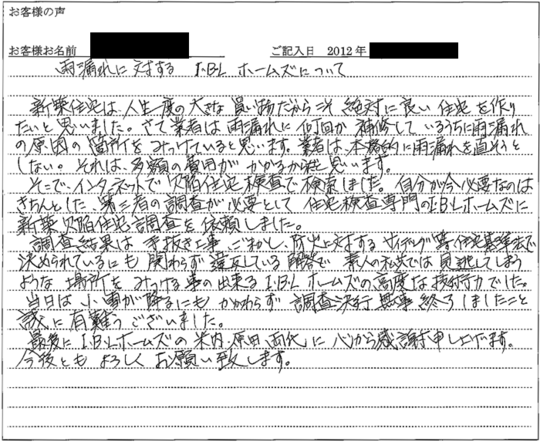 お客様の声
お客様お名前 ご記入日 2012年
雨漏れに対する I.B.L ホームズについて
新築住宅は、人生一度の大きな買い物だからこそ 絶対に良い住宅を作り
たいと思いました。さて業者は雨漏れに何回か補修しているうちに雨漏れ
の原因の箇所をみつけていると思います。業者は、本格的に雨漏れを直そうと
しない。それは、多額の費用がかかるからと思います。
そこで、インターネットで欠陥住宅検査で検索しました。自分が今必要なのは
きちんとした、第三者の調査が必要として 住宅検査専門のI.B.Lホームズに
新築欠陥住宅調査を依頼しました。
調査結果は 手抜き工事 ごまかし、防火に対するサイディング等住宅基準法で
決められているにも関わらず違反している 素人の私共では見逃してしまう
ような場所をみつける事の出来る I.B.Lホームズの高度な技術力でした。
当日は 小雨が降るにもかかわらず、調査決行 無事終了しましたこと
誠に有難うございました。
最後に I.B.Lホームズの 米内、原田両氏に 心から感謝申し上げます。
今後ともよろしくお願い致します。